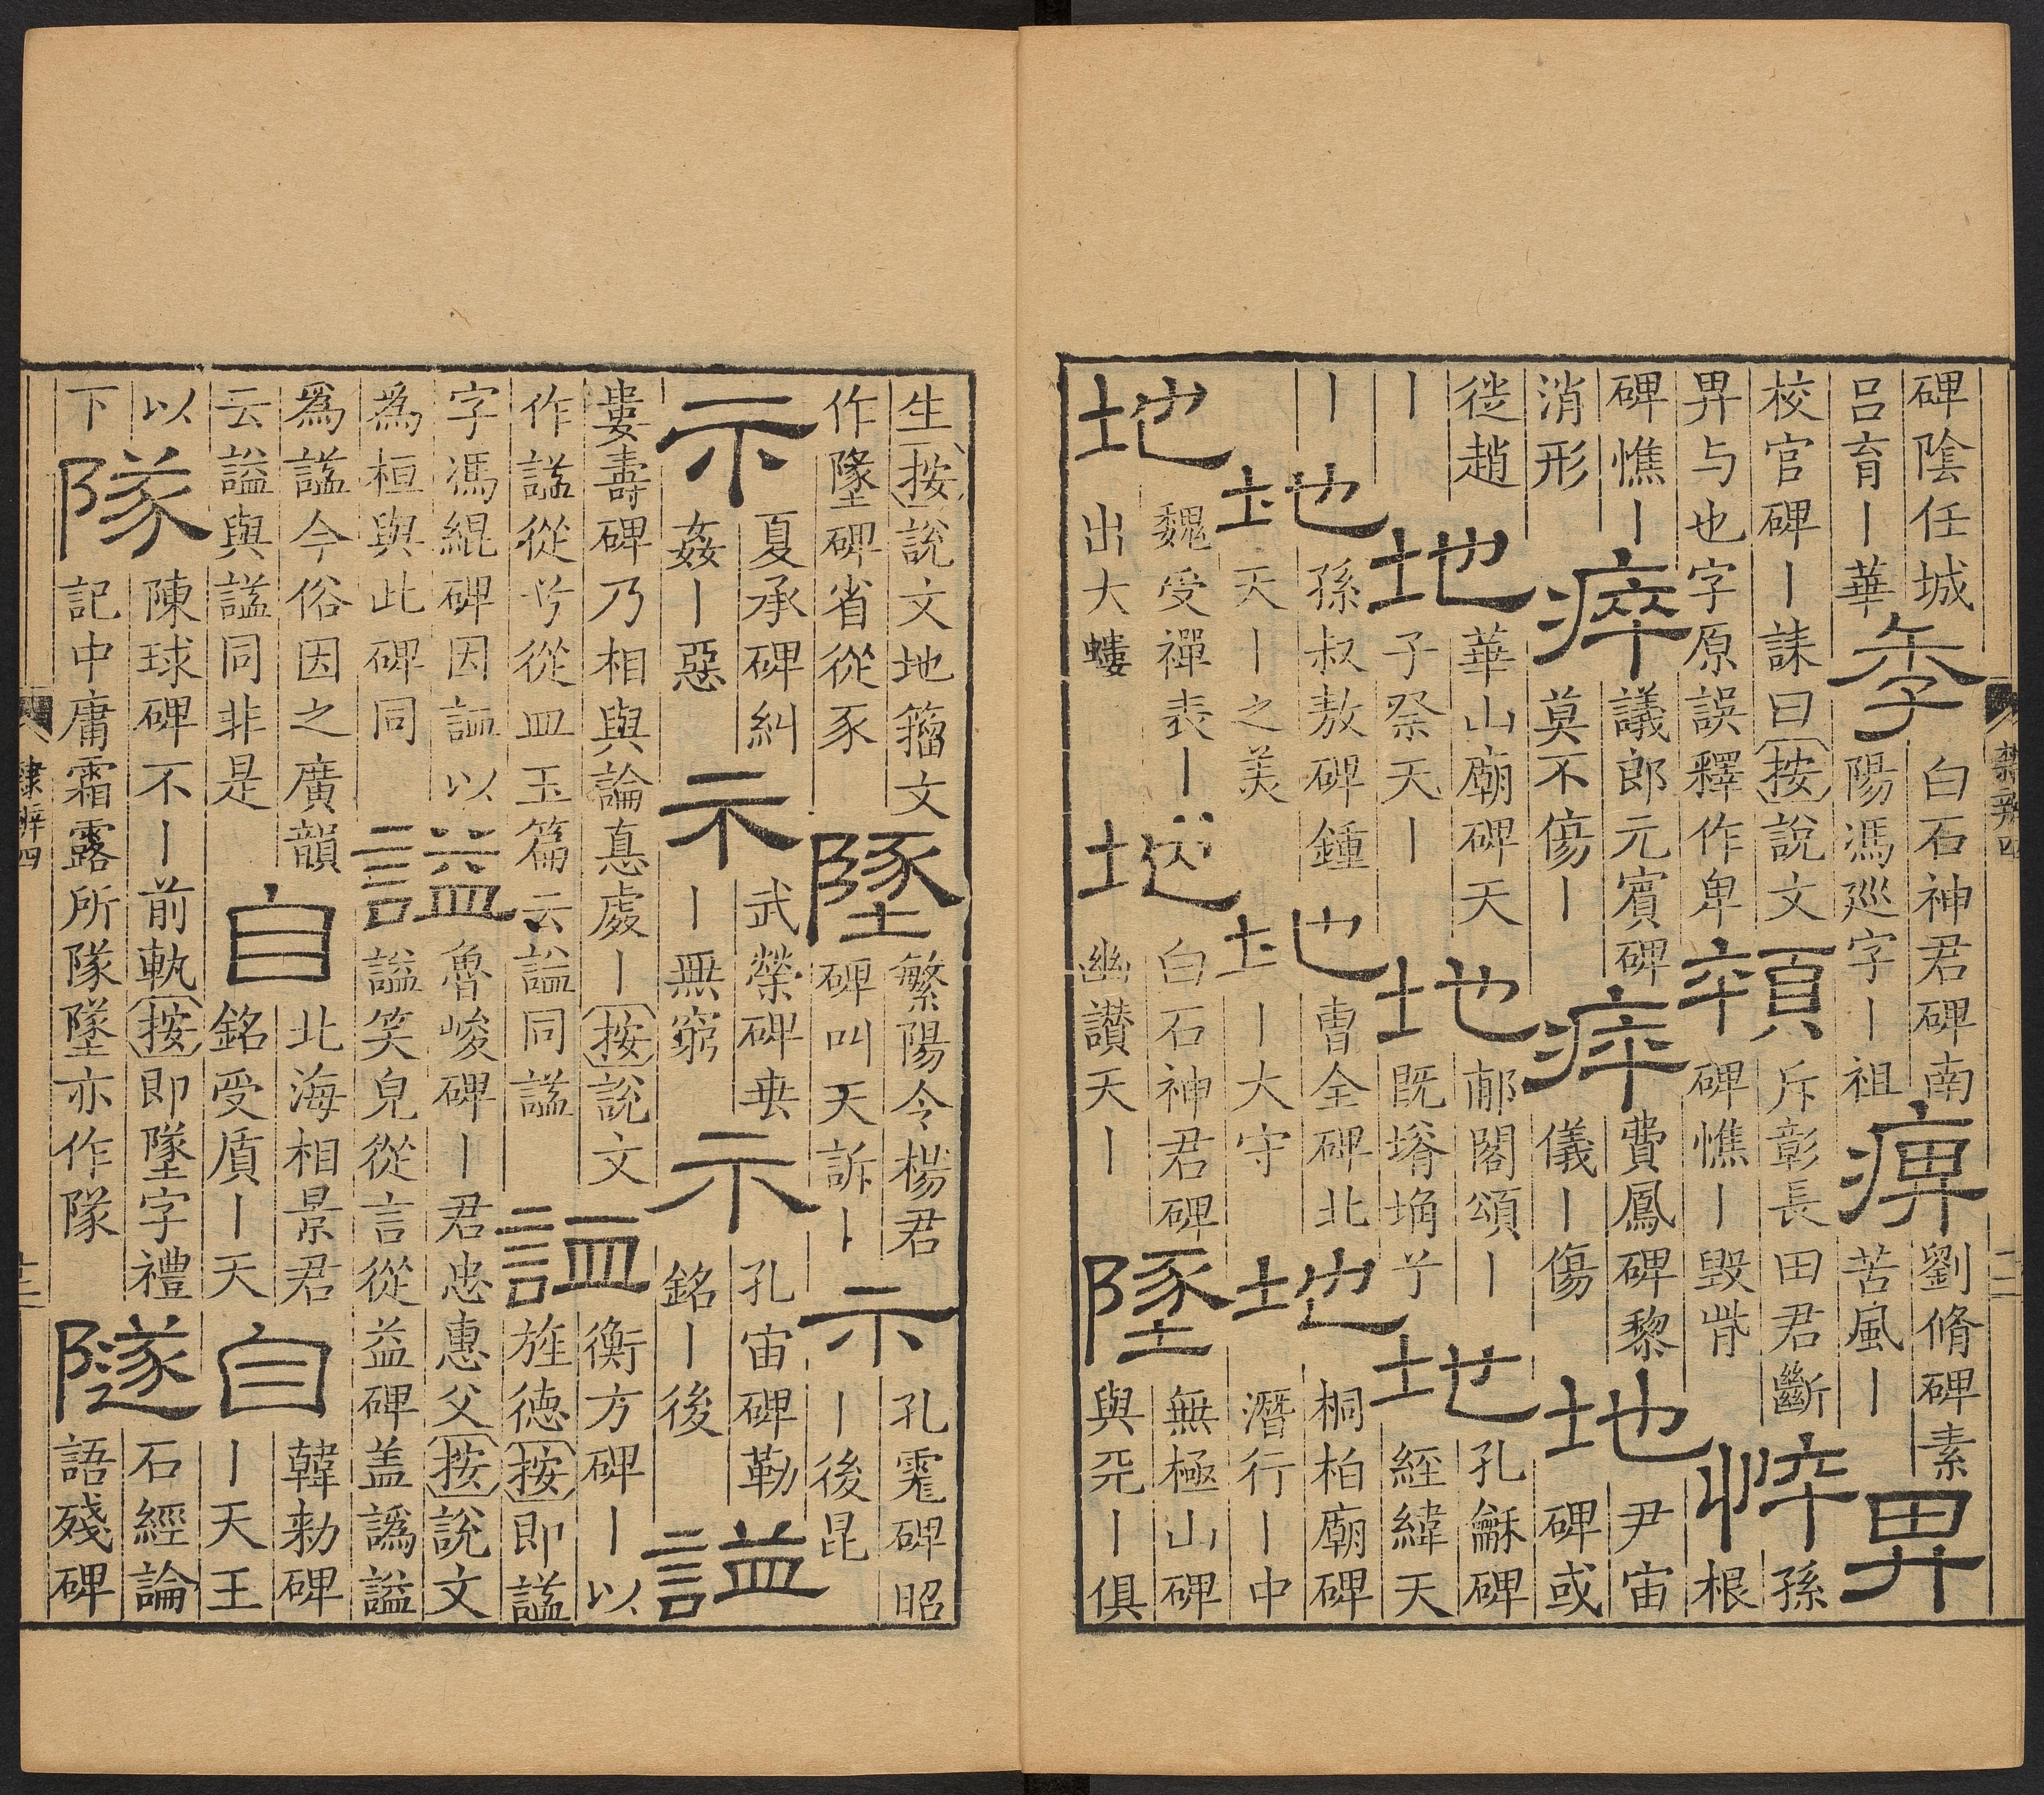 碑陰任城
吕育丨華
秊
白石神君碑南
陽馮巡字丨祖
痹
劉脩碑素
苦風丨
畀
校官碑丨誄曰按說文
畀与也字原誤釋作卑
顇
斥彰長田君斷
碑憔丨毀
悴
孫
根
碑憔丨
消形
瘁
議郎元賓碑
莫不傷丨
瘁
費鳳碑黎
儀丨傷
地
尹宙
碑或
徙趙
丨
地
華山廟碑天
子祭天丨
地
郙閣頌丨
既塉埆兮
地
孔龢碑
經緯天
丨
地
孫叔敖碑鍾
天丨之美
地
曹全碑北
丨大守
地
桐柏廟碑
潛行丨中
地
魏受禪表丨
出大螻
地
白石神君碑
幽讚天丨
墜
無極山碑
與天丨俱
隸辨四
十二
生按說文地籀文
作墬碑省從豕
墜
繁陽令楊君
碑叫天訴丨
示
孔碑昭
丨後昆
示
夏承碑糾
姦丨惡
示
武榮碑垂
丨無窮
示
孔宙碑勒
銘丨後
謚
婁壽碑乃相與論悳處丨按說文
作諡從兮從皿玉篇云謚同諡
䛑
衡方碑丨以
旌德按即諡
字馮緄碑因䛑以
為桓與此碑同
謚
魯峻碑丨君忠惠父按說文
謚笑皃從言從益碑盖譌謚
爲諡今俗因之廣韻
云謚與諡同非是
自
北海相景君
銘受盾丨天
自
韓勑碑
丨天王
以
下
隊
陳球碑不丨前軌按即墜字禮
記中庸霜露所隊墜亦作隊
隧
石經論
語殘碑
隸辨四
十三